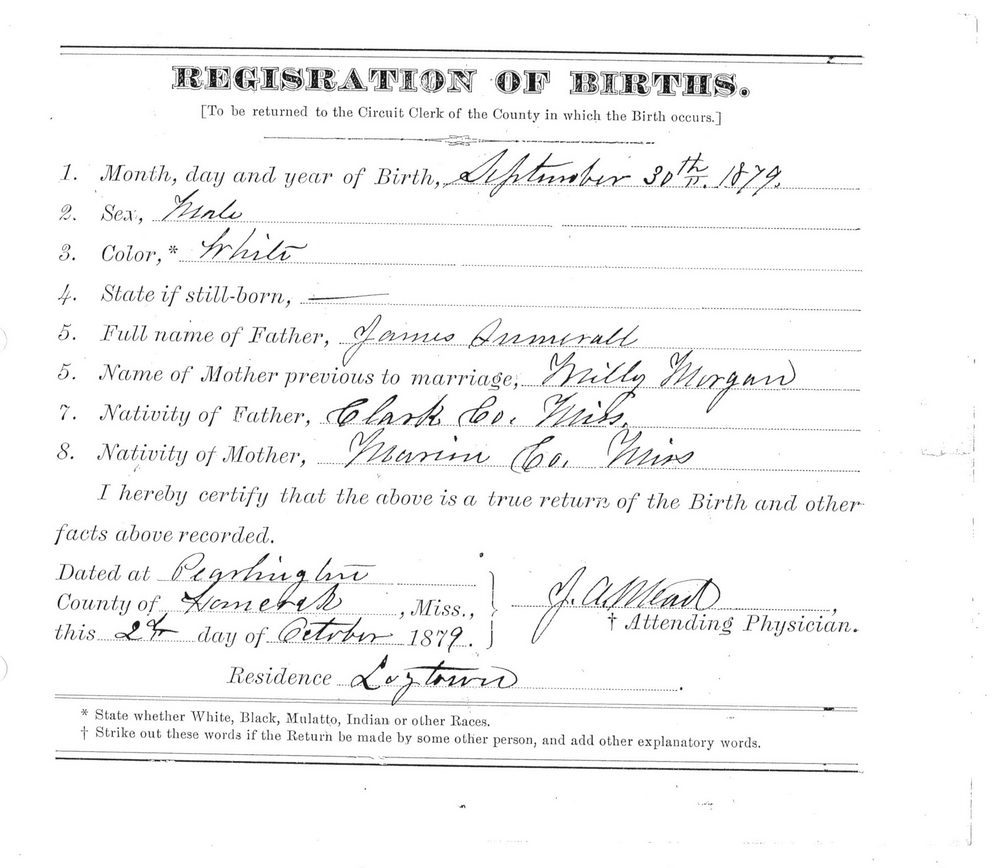 REGISRATION OF BIRTHS.
[To be returned to the Circuit Clerk of the County in which the Birth occurs.]
1. Month, day and year of Birth, September 30th. 1879.
2. Sex, Male
3. Color,* White
4. State if still-born, —
5. Full name of Father, James Sumerall
5. Name of Mother previous to marriage, Milly Morgan
7. Nativity of Father, Clark Co. Miss.
8. Nativity of Mother, Marion Co. Miss
I hereby certify that the above is a true return of the Birth and other
facts above recorded.
Dated at Pearlington
County of , Miss.,
this day of October 1879.
J. A. Mead,
† Attending Physician.
Residence Logtown.
* State whether White, Black, Mulatto, Indian or other Races.
† Strike out these words if the Return be made by some other person, and add other explanatory words.